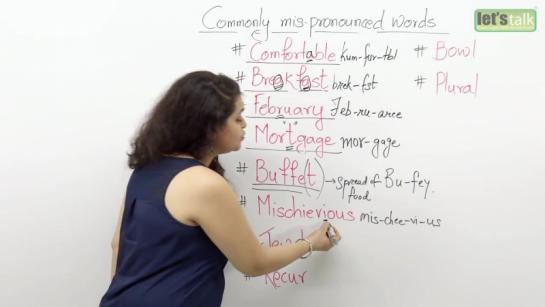 Commonly mis-pronounced words
let'stalk
# Comfortable kum-for-tbl
# Bowl
# Breakfast brek-fst
# Plural
February Feb-ru-aree
Mortgage mor-gage
# Buffet() → spread of food Bu-fey.
# Mischievious mis-chee-vi-us
# Recur